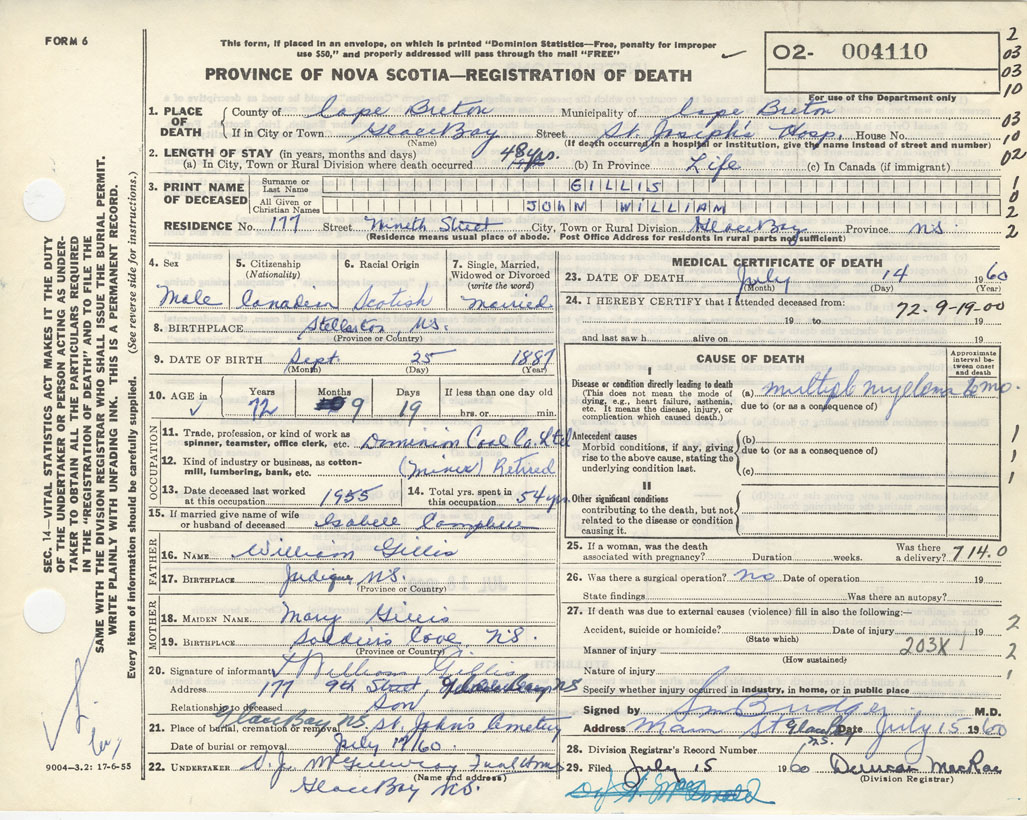 FORM 6
This form, if placed in an envelope, on which is printed "Dominion Statistics—Free, penalty for improper
use $50," and properly addressed will pass through the mail "FREE"
O2- 004110
2
03
03
10
PROVINCE OF NOVA SCOTIA—REGISTRATION OF DEATH
For use of the Department only
1. PLACE OF DEATH County of Cape Breton Municipality of Cape Breton 03
If in City or Town Glace Bay Street St. Joseph's Hosp. House No. 10
(Name) (If death occurred in a hospital or institution, give the name instead of street and number)
2. LENGTH OF STAY (in years, months and days)
(a) In City, Town or Rural Division where death occurred 48 yrs. (b) In Province Life (c) In Canada (if immigrant) 02
3. PRINT NAME OF DECEASED Surname or Last Name GILLIS 1
All Given or Christian Names JOHN WILLIAM 0 2
RESIDENCE No. 177 Street Nineth Street City, Town or Rural Division Glace Bay Province N.S. 2
(Residence means usual place of abode. Post Office Address for residents in rural parts not sufficient)
SEC. 14—VITAL STATISTICS ACT MAKES IT THE DUTY
OF THE UNDERTAKER OR PERSON ACTING AS UNDER-
TAKER TO OBTAIN ALL THE PARTICULARS REQUIRED
IN THE "REGISTRATION OF DEATH" AND TO FILE THE
SAME WITH THE DIVISION REGISTRAR WHO SHALL ISSUE THE BURIAL PERMIT.
WRITE PLAINLY WITH UNFADING INK. THIS IS A PERMANENT RECORD.
Every item of information should be carefully supplied. (See reverse side for instructions.)
4. Sex 5. Citizenship (Nationality) 6. Racial Origin 7. Single, Married, Widowed or Divorced (write the word)
Male Canadian Scotish Married
8. BIRTHPLACE Stellarton, N.S.
(Province or Country)
9. DATE OF BIRTH Sept. 25 1887
(Month) (Day) (Year)
10. AGE in Years Months Days If less than one day
72 9 19 hrs. or min.
OCCUPATION
11. Trade, profession, or kind of work as
spinner, teamster, office clerk, etc. Dominion Coal Co. Ltd
12. Kind of industry or business, as cotton-
mill, lumbering, bank, etc. (Miner) Retired
13. Date deceased last worked at this occupation 1955 14. Total yrs. spent in this occupation 54 yrs
15. If married give name of wife
or husband of deceased Isabell
FATHER
16. NAME William Gillis
17. BIRTHPLACE Judique N.S.
(Province or Country)
MOTHER
18. MAIDEN NAME Mary Gillis
19. BIRTHPLACE Soldiers Cove N.S.
(Province or Country)
20. Signature of informant William Gillis
Address 177 9th Street, Glace Bay NS
Relationship to deceased Son
21. Place of burial, cremation or removal Glace Bay N.S. St. John's Cemetery
Date of burial or removal July 17/60.
22. UNDERTAKER D. J.
(Name and address)
Glace Bay N.S.
9004-3.2: 17-6-55
MEDICAL CERTIFICATE OF DEATH
23. DATE OF DEATH July 14 1960
(Month) (Day) (Year)
24. I HEREBY CERTIFY that I attended deceased from: 72-9-19-00
19 to 19
and last saw h alive on 19
CAUSE OF DEATH
Approximate interval between onset and death
I
Disease or condition directly leading to death
(This does not mean the mode of
dying, e.g., heart failure, asthenia,
etc. It means the disease, injury, or
complication which caused death.)
(a) multipl myeloma 6 mo.
due to (or as a consequence of)
Antecedent causes
Morbid conditions, if any, giving
rise to the above cause, stating the
underlying condition last.
(b)
due to (or as a consequence of)
(c)
1
1
1
II
Other significant conditions
contributing to the death, but not
related to the disease or condition
causing it.
25. If a woman, was the death associated with pregnancy? Duration weeks. Was there a delivery? 714.0
26. Was there a surgical operation? no Date of operation 19
State findings Was there an autopsy?
27. If death was due to external causes (violence) fill in also the following:—
Accident, suicide or homicide? Date of injury 19 2
(State which)
Manner of injury 203X 1 2
(How sustained)
Nature of injury 1
Specify whether injury occurred in industry, in home, or in public place
Signed by M.D.
Address Main St Glace Bay N.S. Date July 15 1960
28. Division Registrar's Record Number
29. Filed July 15 1960 Duncan MacRae
(Division Registrar)
MacDonald